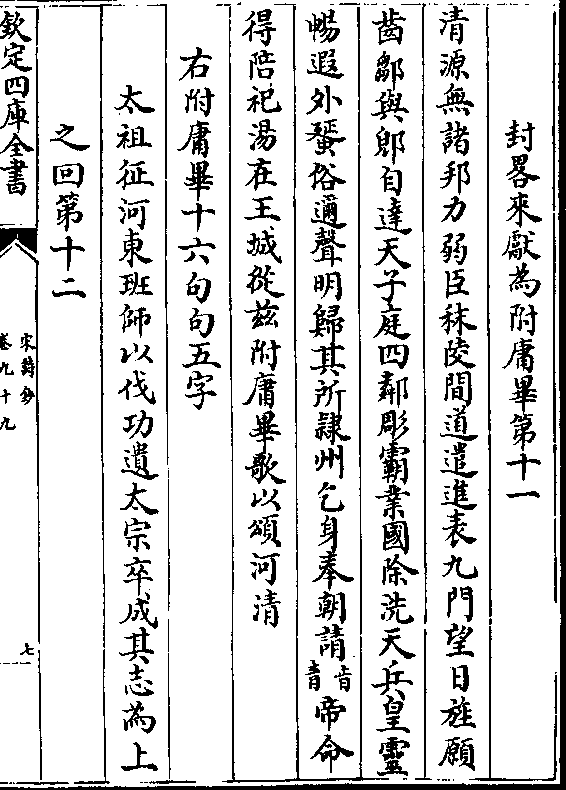 封畧來獻為附庸畢第十一
清源無諸邦力弱臣秣陵間道遣進表九門望日旌願
齒鄒與郳自達天子庭四鄰彫霸業國除洗天兵皇靈
暢遐外蜑俗邇聲明歸其所隸州乞身奉朝請音青帝命
得陪祀湯在王城從兹附庸畢歌以頌河清
右附庸畢十六句句五字
太祖征河東班師以伐功遺太宗卒成其志為上
之回第十二
欽定四庫全書
宋詩鈔
卷九十九
七